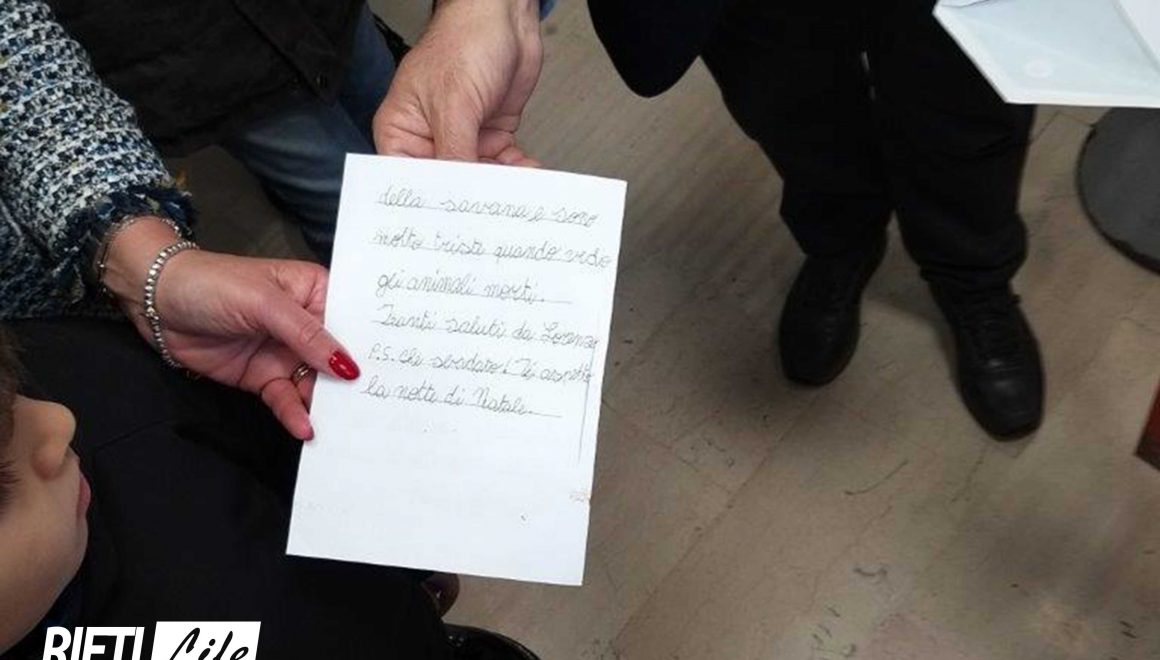 della savana e sono
molto triste quando vedo
gli animali morti.
Tanti saluti da Lorenzo
P.S. Che sbadato! Ti aspetto
la notte di Natale.
RIETI Life